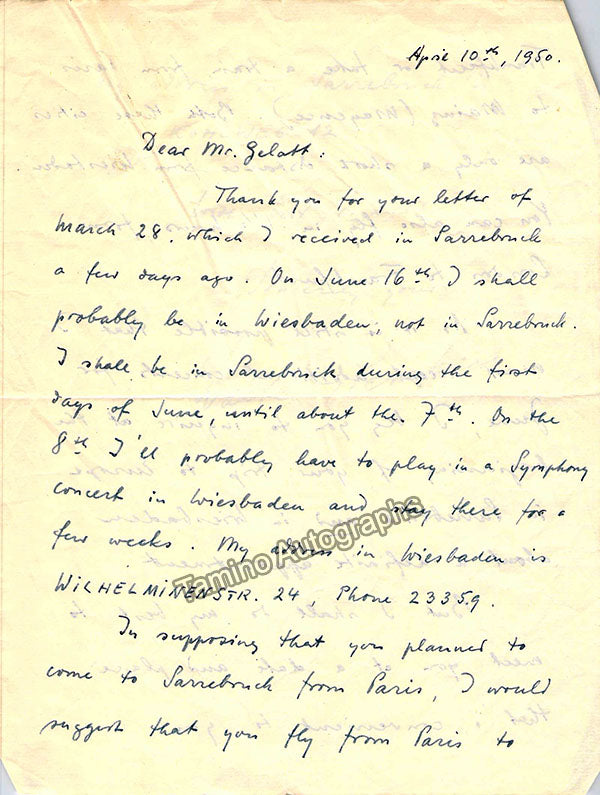 April 10th, 1950.
Dear Mr. Gelatt:
Thank you for your letter of
March 28. which I received in Sarrebruck
a few days ago. On June 16th I shall
probably be in Wiesbaden, not in Sarrebruck.
I shall be in Sarrebruck during the first
days of June, until about the 7th. On the
8th I'll probably have to play in a Symphony
concert in Wiesbaden and stay there for a
few weeks. My address in Wiesbaden is
Tamino Autographs
WILHELMINENSTR. 24, Phone 23359.
In supposing that you planned to
come to Sarrebruck from Paris, I would
suggest that you fly from Paris to